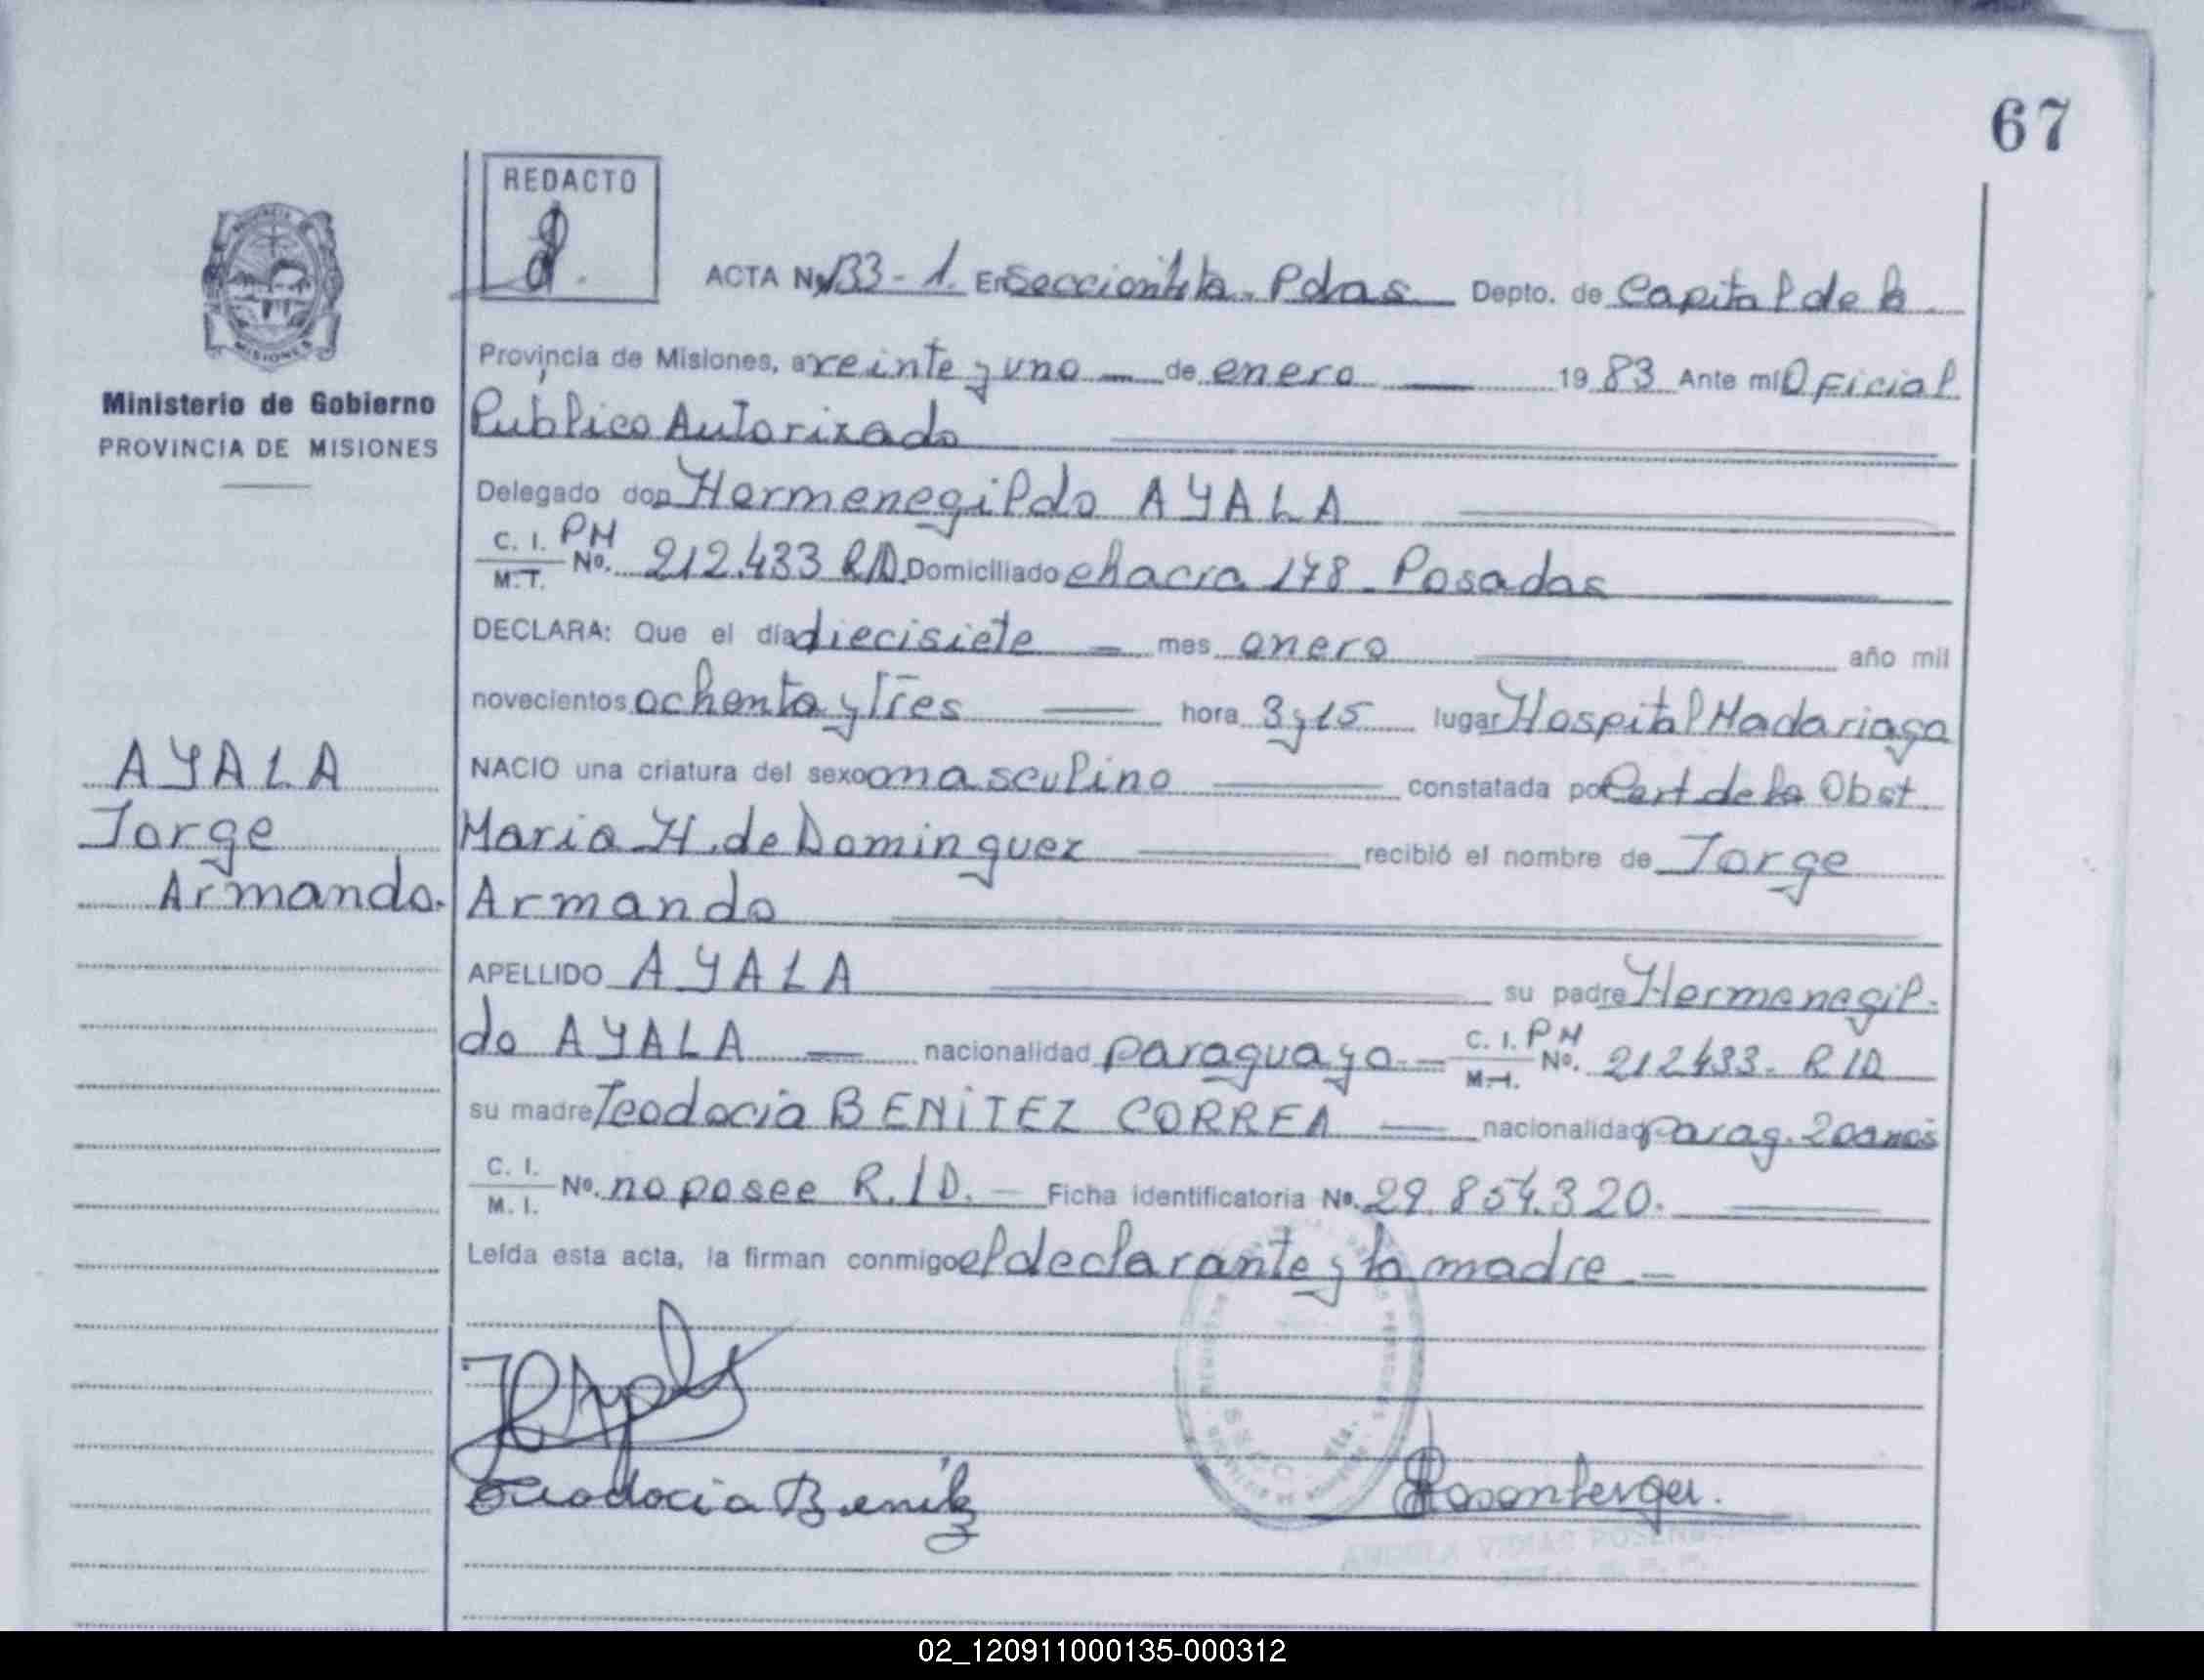 67
REDACTO
ACTA No 133-1. En Seccion 1a. Pdas Depto. de Capital de la
Provincia de Misiones, a veinte y uno de enero 1983 Ante mi Oficial
Publico Autorizado
Ministerio de Gobierno
PROVINCIA DE MISIONES
Delegado don Hermenegildo AYALA
C. I. PM
M. I. No. 212.433 R/D. Domiciliado chacra 178 - Posadas
DECLARA: Que el día diecisiete mes enero año mil
novecientos ochenta y tres hora 3 y 15 lugar Hospital Madariaga
NACIO una criatura del sexo masculino constatada por Cert de la Obst
Maria H. de Dominguez recibió el nombre de Jorge
Armando
AYALA
Jorge
Armando.
APELLIDO AYALA su padre Hermenegil-
do AYALA nacionalidad paraguaya - C. I. PM
M. I. No. 212433 - R/D
su madre Teodocia BENITEZ CORREA nacionalidad parag. 20 anos
C. I.
M. I. No. no posee R.I.D. - Ficha identificatoria No. 29.854.320.
Leída esta acta, la firman conmigo el declarante y la madre -
Teodocia Benitez
Rosenberger.
02_120911000135-000312